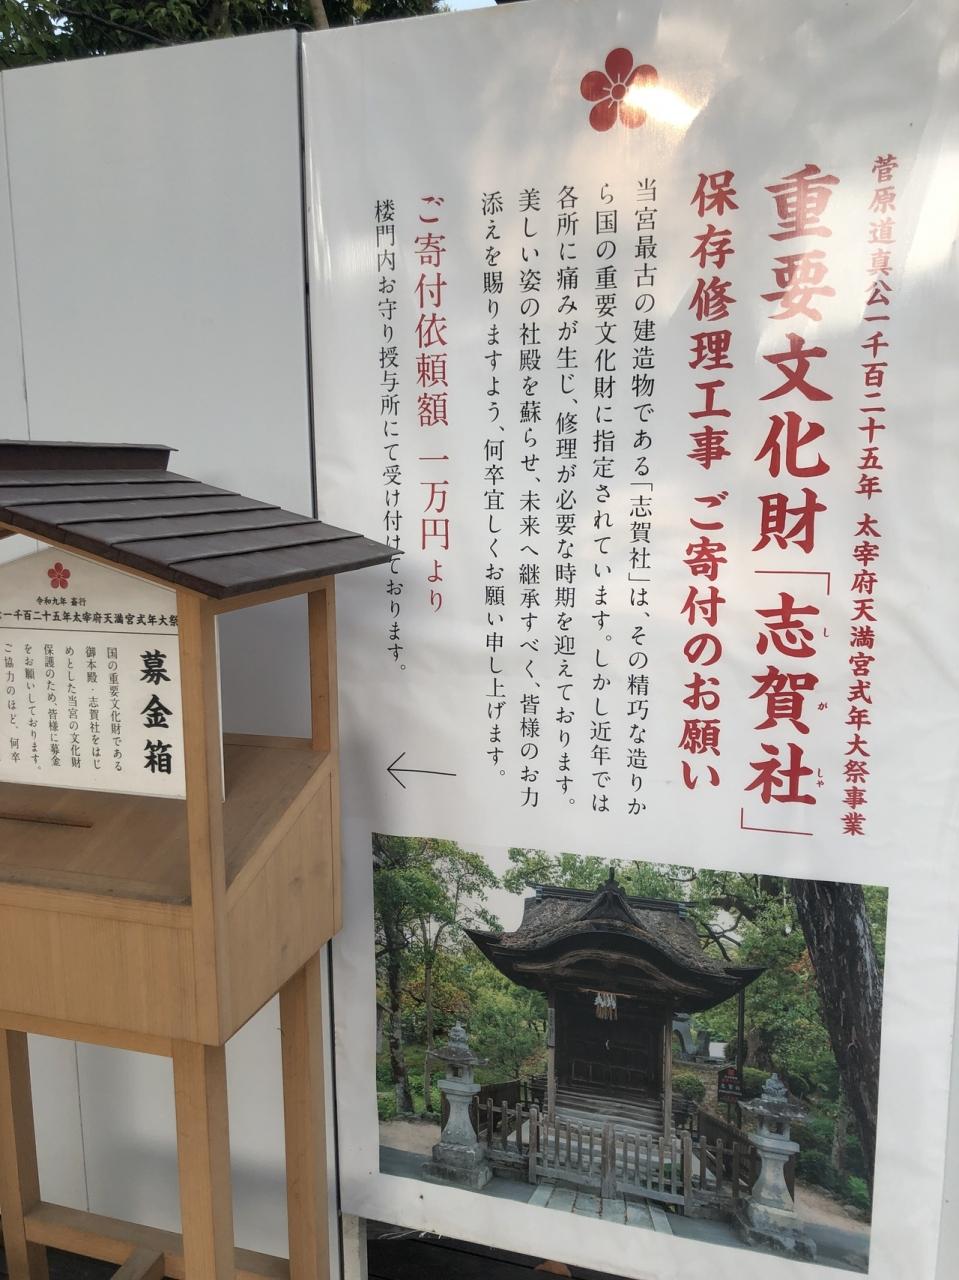 菅原道真公一千百二十五年 太宰府天満宮式年大祭事業
重要文化財「志賀社」
しがしゃ
保存修理工事 ご寄付のお願い
当宮最古の建造物である「志賀社」は、その精巧な造りか
ら国の重要文化財に指定されています。しかし近年では
各所に痛みが生じ、修理が必要な時期を迎えております。
美しい姿の社殿を蘇らせ、未来へ継承すべく、皆様のお力
添えを賜りますよう、何卒宜しくお願い申し上げます。
ご寄付依頼額 一万円より
楼門内お守り授与所にて受け付けております。
←
令和九年 斎行
一千百二十五年太宰府天満宮式年大祭
募金箱
国の重要文化財である
御本殿・志賀社をはじ
めとした当宮の文化財
保護のため、皆様に募金
をお願いしております。
ご協力のほど、何卒